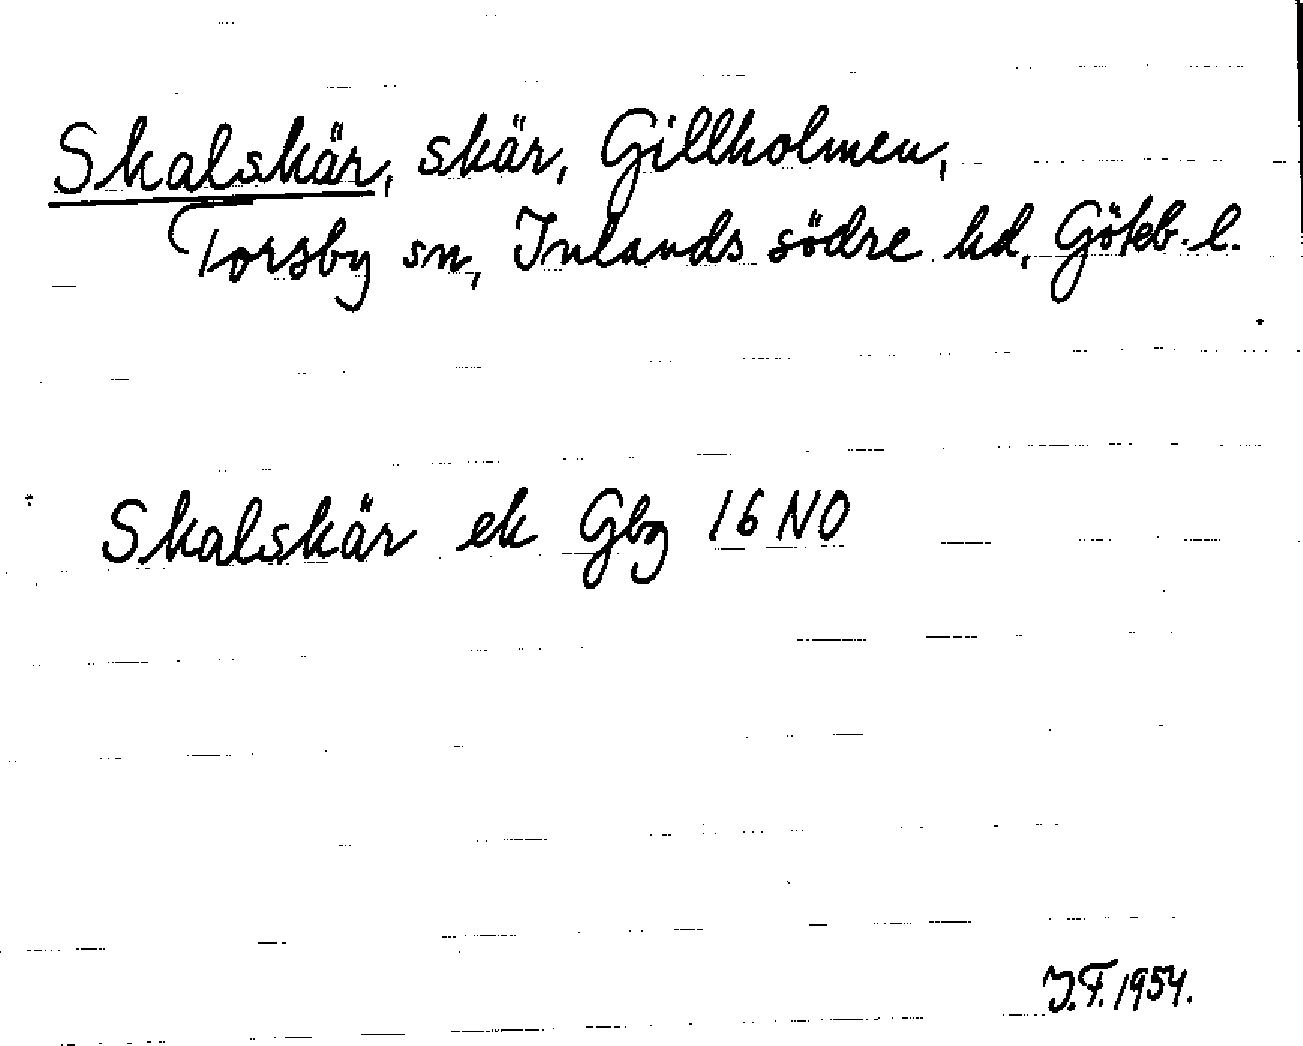 Skalskär, skär, Gillholmen,
Torsby sn, Inlands södre hd, Göteb. l.
Skalskär ek Gbg 16 NO
J.F. 1954.